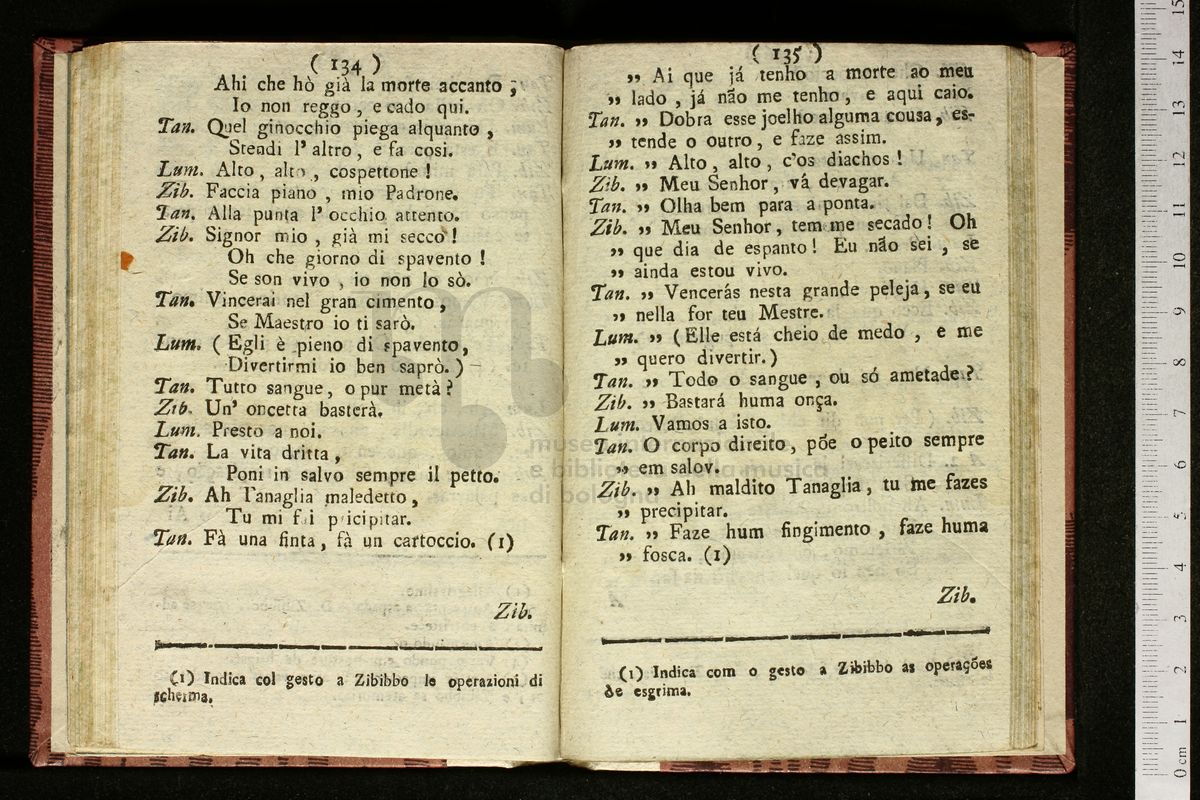 ( 134 )
Ahi che hò già la morte accanto ;
Io non reggo , e cado qui.
Tan. Quel ginocchio piega alquanto ,
Stendi l' altro , e fa cosi.
Lum. Alto , alto , cospettone !
Zib. Faccia piano , mio Padrone.
Tan. Alla punta l' occhio attento.
Zib. Signor mio , già mi secco !
Oh che giorno di spavento !
Se son vivo , io non lo sò.
Tan. Vincerai nel gran cimento ,
Se Maestro io ti sarò.
Lum. ( Egli è pieno di spavento,
Divertirmi io ben saprò. )
Tan. Tutto sangue , o pur metà ?
Zib. Un' oncetta basterà.
Lum. Presto a noi.
Tan. La vita dritta ,
Poni in salvo sempre il petto.
Zib. Ah Tanaglia maledetto ,
Tu mi fai pricipitar.
Tan. Fà una finta , fà un cartoccio. (1)
Zib.
(1) Indica col gesto a Zibibbo le operazioni di
scherma.
( 135 )
,, Ai que já tenho a morte ao meu
,, lado , já não me tenho , e aqui caio.
Tan. ,, Dobra esse joelho alguma cousa, es-
,, tende o outro , e faze assim.
Lum. ,, Alto , alto , c'os diachos !
Zib. ,, Meu Senhor , vá devagar.
Tan. ,, Olha bem para a ponta.
Zib. ,, Meu Senhor, tem me secado ! Oh
,, que dia de espanto ! Eu não sei , se
,, ainda estou vivo.
Tan. ,, Vencerás nesta grande peleja , se eu
,, nella for teu Mestre.
Lum. ,, (Elle está cheio de medo , e me
,, quero divertir.)
Tan. ,, Todo o sangue , ou só ametade ?
Zib. ,, Bastará huma onça.
Lum. Vamos a isto.
Tan. O corpo direito , põe o peito sempre
,, em salov.
Zib. ,, Ah maldito Tanaglia , tu me fazes
,, precipitar.
Tan. ,, Faze hum fingimento , faze huma
,, fosca. (1)
Zib.
(1) Indica com o gesto a Zibibbo as operações
de esgrima.